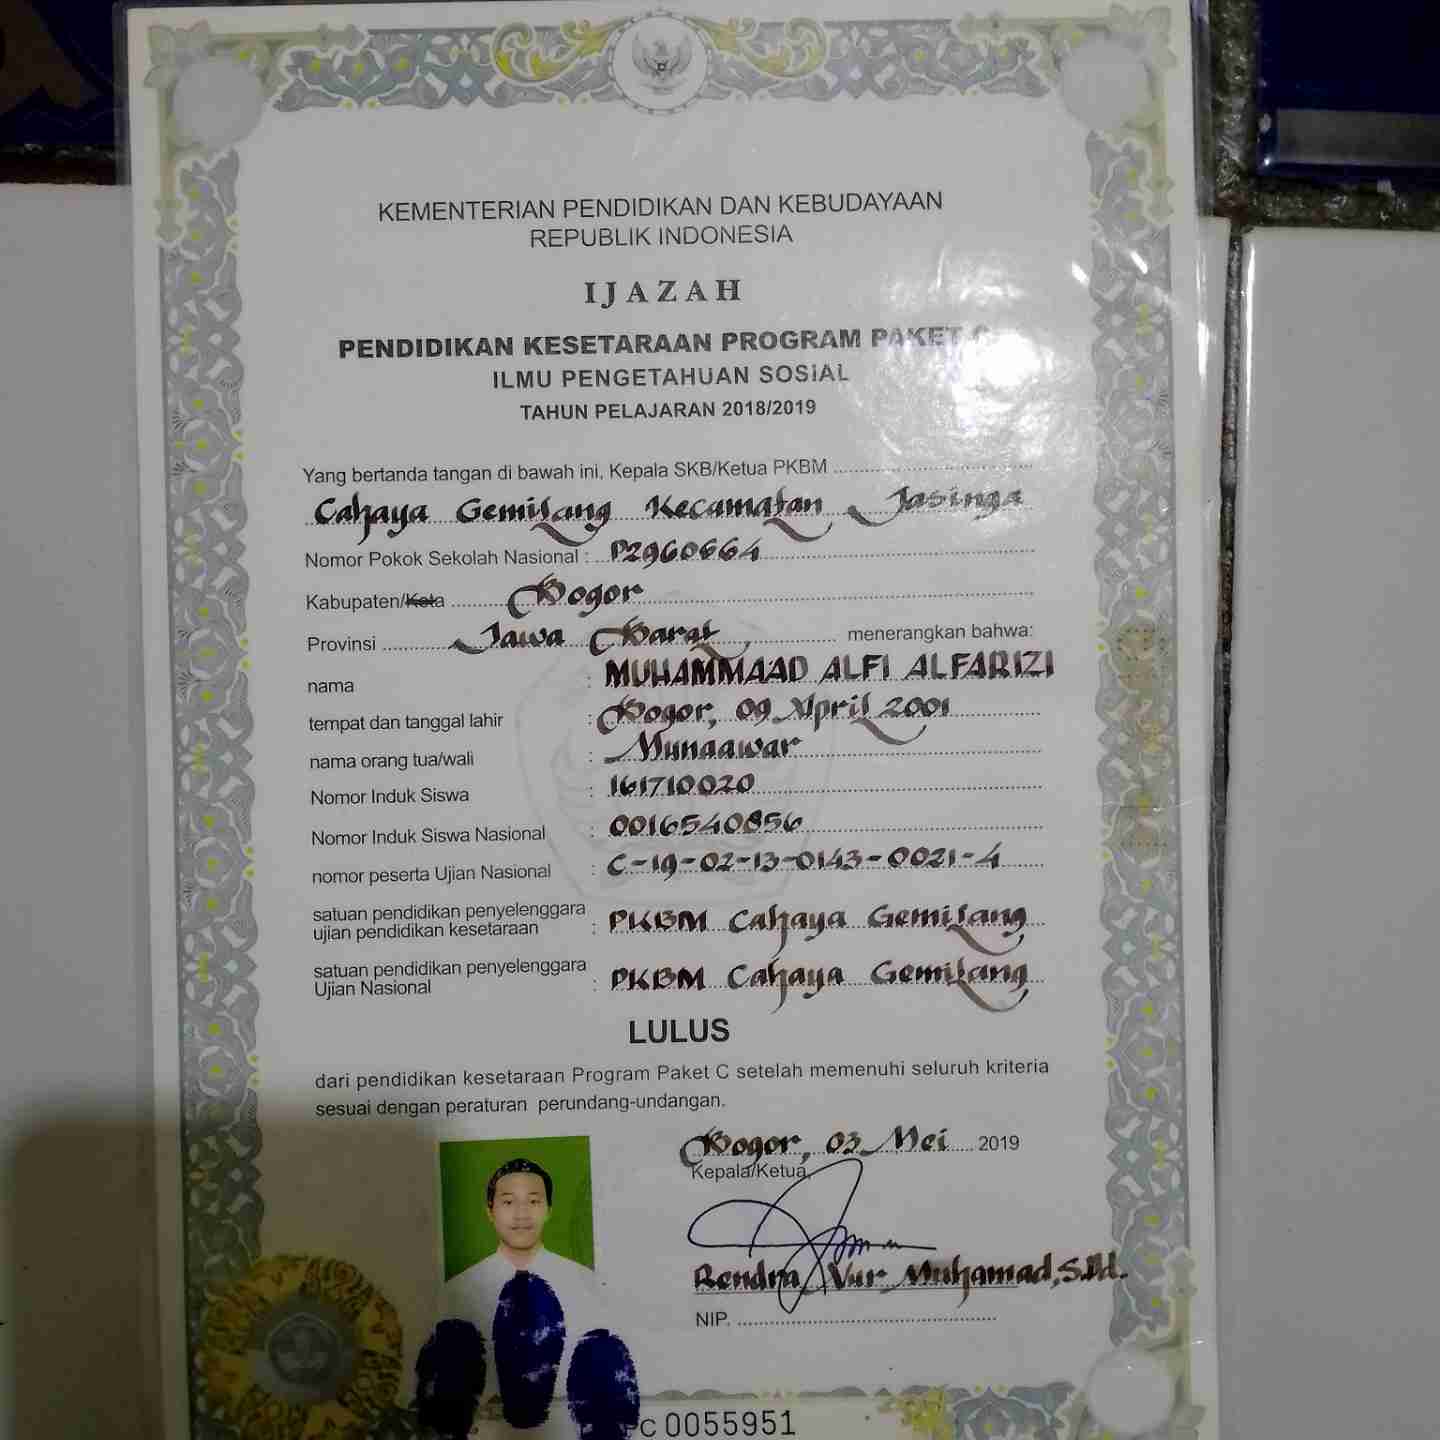 KEMENTERIAN PENDIDIKAN DAN KEBUDAYAAN
REPUBLIK INDONESIA
IJAZAH
PENDIDIKAN KESETARAAN PROGRAM PAKET C
ILMU PENGETAHUAN SOSIAL
TAHUN PELAJARAN 2018/2019
Yang bertanda tangan di bawah ini, Kepala SKB/Ketua PKBM
Cahaya Gemilang Kecamatan Jasinga
Nomor Pokok Sekolah Nasional : P2960664
Kabupaten/Kota Bogor
Provinsi Jawa Barat, menerangkan bahwa:
nama : MUHAMMAAD ALFI ALFARIZI
tempat dan tanggal lahir : Bogor, 09 April 2001
nama orang tua/wali : Munaawar
Nomor Induk Siswa : 161710020
Nomor Induk Siswa Nasional : 0016540856
nomor peserta Ujian Nasional : C-19-02-13-0143-0021-4
satuan pendidikan penyelenggara
ujian pendidikan kesetaraan : PKBM Cahaya Gemilang
satuan pendidikan penyelenggara
Ujian Nasional : PKBM Cahaya Gemilang
LULUS
dari pendidikan kesetaraan Program Paket C setelah memenuhi seluruh kriteria
sesuai dengan peraturan perundang-undangan.
Bogor, 03 Mei 2019
Kepala/Ketua,
Rendra Nur Muhamad, S.Pd.
NIP.
PC 0055951